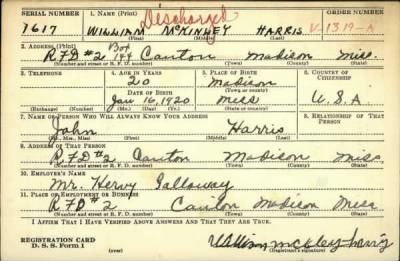 SERIAL NUMBER 1. NAME (Print) Discharged ORDER NUMBER
1617 WILLIAM McKINLEY HARRIS V-1319-A
(First) (Middle) (Last)
2. ADDRESS (Print)
RFD #2 Box 144 Canton Madison Miss.
(Number and street or R. F. D. number) (Town) (County) (State)
3. TELEPHONE 4. AGE IN YEARS 5. PLACE OF BIRTH 6. COUNTRY OF CITIZENSHIP
20 Madison
DATE OF BIRTH (Town or county)
Jan 16, 1920 Miss U.S.A
(Exchange) (Number) (Mo.) (Day) (Yr.) (State or country)
7. NAME OF PERSON WHO WILL ALWAYS KNOW YOUR ADDRESS 8. RELATIONSHIP OF THAT PERSON
John Harris
(Mr., Mrs., Miss) (First) (Middle) (Last)
9. ADDRESS OF THAT PERSON
RFD #2 Canton Madison Miss.
(Number and street or R. F. D. number) (Town) (County) (State)
10. EMPLOYER'S NAME
Mr. Hervy Galloway
11. PLACE OF EMPLOYMENT OR BUSINESS
RFD #2 Canton Madison Miss
(Number and street or R. F. D. number) (Town) (County) (State)
I AFFIRM THAT I HAVE VERIFIED ABOVE ANSWERS AND THAT THEY ARE TRUE.
REGISTRATION CARD
D. S. S. Form 1 William